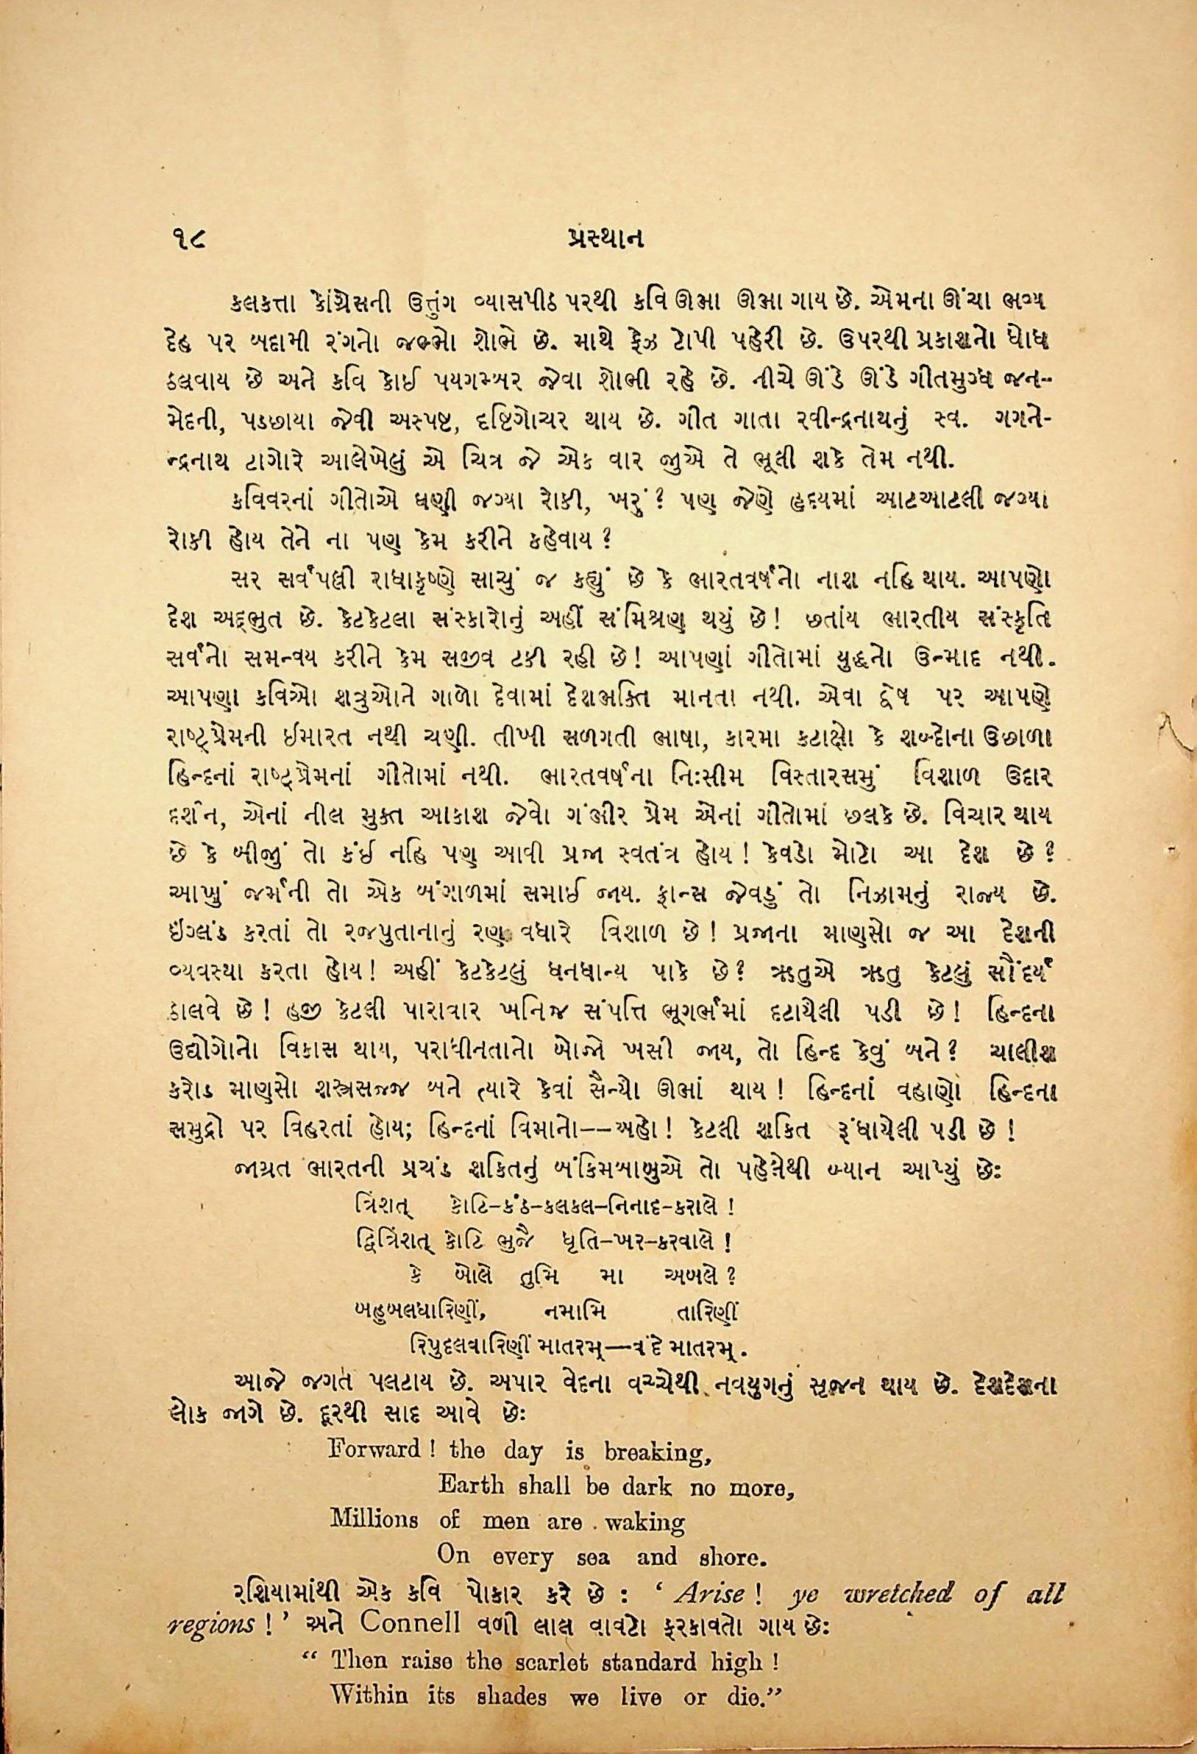 ૧૮ પ્રસ્થાન
કલકત્તા કોંગ્રેસની ઉત્તુંગ વ્યાસપીઠ પરથી કવિ ઊભા ઊભા ગાય છે. એમના ઊંચા ભવ્ય
દેહ પર બદામી રંગનો જભ્ભો શોભે છે. માથે ફેઝ ટોપી પહેરી છે. ઉપરથી પ્રકાશનો ધોધ
ઠલવાય છે અને કવિ કોઈ પયગમ્બર જેવા શોભી રહે છે. નીચે ઊંડે ઊંડે ગીતમુગ્ધ જન-
મેદની, પડછાયા જેવી અસ્પષ્ટ, દૃષ્ટિગોચર થાય છે. ગીત ગાતા રવીન્દ્રનાથનું સ્વ. ગગને-
ન્દ્રનાથ ટાગોરે આલેખેલું એ ચિત્ર જે એક વાર જુએ તે ભૂલી શકે તેમ નથી.
કવિવરનાં ગીતોએ ઘણી જગ્યા રોકી, ખરું? પણ જેણે હૃદયમાં આટઆટલી જગ્યા
રોકી હોય તેને ના પણ કેમ કરીને કહેવાય?
સર સર્વપલ્લી રાધાકૃષ્ણે સાચું જ કહ્યું છે કે ભારતવર્ષનો નાશ નહિ થાય. આપણો
દેશ અદ્ભુત છે. કેટકેટલા સંસ્કારોનું અહીં સંમિશ્રણ થયું છે! છતાંય ભારતીય સંસ્કૃતિ
સર્વનો સમન્વય કરીને કેમ સજીવ ટકી રહી છે! આપણાં ગીતોમાં યુદ્ધનો ઉન્માદ નથી.
આપણા કવિઓ શત્રુઓને ગાળો દેવામાં દેશભક્તિ માનતા નથી. એવા દ્વેષ પર આપણે
રાષ્ટ્રપ્રેમની ઈમારત નથી ચણી. તીખી સળગતી ભાષા, કારમા કટાક્ષો કે શબ્દોના ઉછાળા
હિન્દનાં રાષ્ટ્રપ્રેમનાં ગીતોમાં નથી. ભારતવર્ષના નિઃસીમ વિસ્તારસમું વિશાળ ઉદાર
દર્શન, એનાં નીલ મુક્ત આકાશ જેવો ગંભીર પ્રેમ એનાં ગીતોમાં છલકે છે. વિચાર થાય
છે કે બીજું તો કંઈ નહિ પણ આવી પ્રજા સ્વતંત્ર હોય! કેવડો મોટો આ દેશ છે?
આખું જર્મની તો એક બંગાળમાં સમાઈ જાય. ફ્રાન્સ જેવડું તો નિઝામનું રાજ્ય છે.
ઇંગ્લંડ કરતાં તો રજપુતાનાનું રણ વધારે વિશાળ છે! પ્રજાના માણસો જ આ દેશની
વ્યવસ્થા કરતા હોય! અહીં કેટકેટલું ધનધાન્ય પાકે છે? ઋતુએ ઋતુ કેટલું સૌંદર્ય
ઠાલવે છે! હજી કેટલી પારાવાર ખનિજ સંપત્તિ ભૂગર્ભમાં દટાયેલી પડી છે! હિન્દના
ઉદ્યોગોનો વિકાસ થાય, પરાધીનતાનો બોજો ખસી જાય, તો હિન્દ કેવું બને? ચાલીશ
કરોડ માણસો શસ્ત્રસજ્જ બને ત્યારે કેવાં સૈન્યો ઊભાં થાય! હિન્દનાં વહાણો હિન્દના
સમુદ્રો પર વિહરતાં હોય; હિન્દનાં વિમાનો——અહો! કેટલી શકિત રૂંધાયેલી પડી છે!
જાગ્રત ભારતની પ્રચંડ શકિતનું બંકિમબાબુએ તો પહેલેથી બ્યાન આપ્યું છેઃ
ત્રિંશત્ કોટિ-કંઠ-કલકલ-નિનાદ-કરાલે!
દ્વિત્રિંશત્ કોટિ ભુજૈ ધૃતિ-ખર-કરવાલે!
કે બોલે તુમિ મા અબલે?
બહુબલધારિણીં, નમામિ તારિણીં
રિપુદલવારિણીં માતરમ્—વંદે માતરમ્.
આજે જગત પલટાય છે. અપાર વેદના વચ્ચેથી નવયુગનું સૃજન થાય છે. દેશદેશના
લોક જાગે છે. દૂરથી સાદ આવે છેઃ
Forward! the day is breaking,
Earth shall be dark no more,
Millions of men are waking
On every sea and shore.
રશિયામાંથી એક કવિ પોકાર કરે છે : ‘Arise! ye wretched of all
regions!’ અને Connell વળી લાલ વાવટો ફરકાવતો ગાય છેઃ
“Then raise the scarlet standard high!
Within its shades we live or die.”